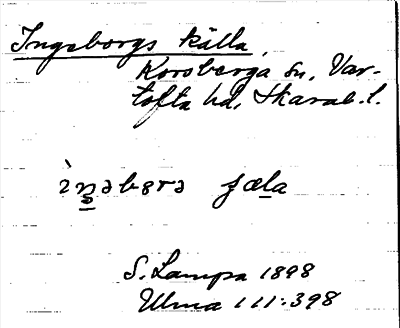 Ingeborgs källa,
Korsberga sn, Var-
tofta hd, Skarab. l.
ìŋəbərə ɟæla
S. Lampa 1898
Ulma 111:398